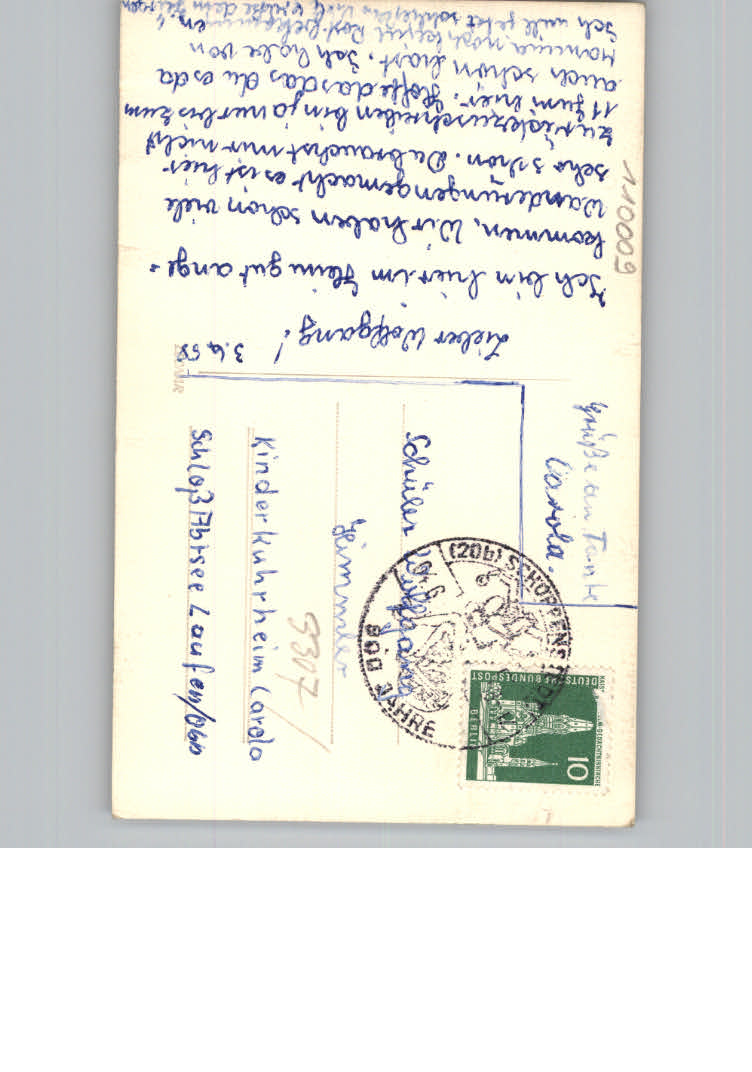 Lieber Wolfgang!
3.6.58
Ich bin hier im Heim gut ange-
kommen. Wir haben schon viele
Wanderungen gemacht es ist hier
sehr schön. Du brauchst mir nicht
zurückzuschreiben bin ja nur bis zum
11 Juni hier. Hoffe das das du es da
auch schön hast. Ich habe von
Mamma noch keine Post bekomm
en.
Ich will jetzt schließen
Grüße an Tante
Carola.
Schüler Wolfgang
Himmler
Kinderkuhrheim Cardo
Schloß Abtsee Laufen/Obb
9307
110009
(20b) SCHÖPPENSTEDT
800 JAHRE
DEUTSCHE BUNDESPOST
BERLIN
10